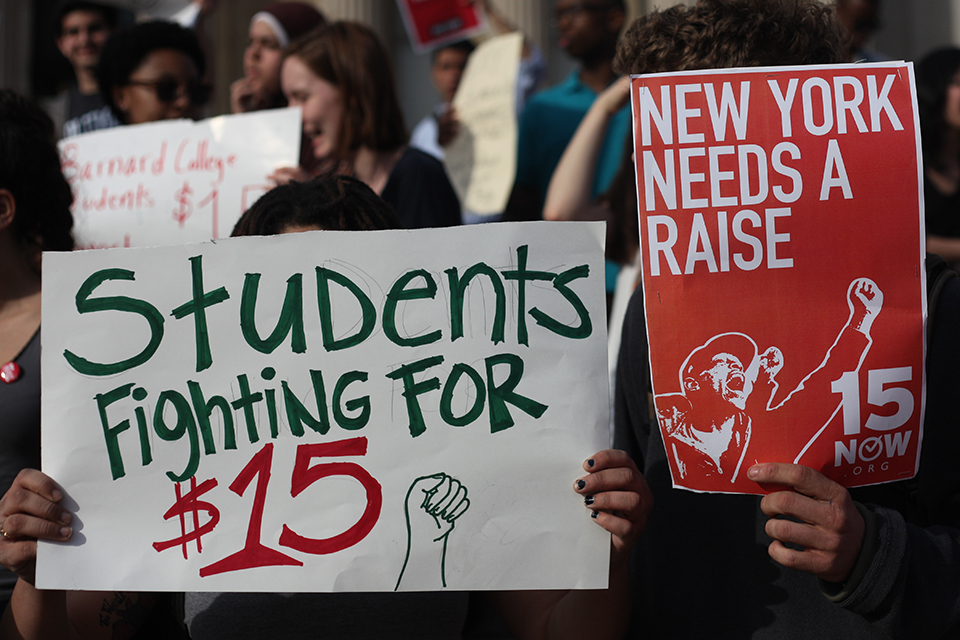 Barnard College
Students $1
Students
Fighting For
$15
NEW YORK
NEEDS A
RAISE
15
NOW
ORG